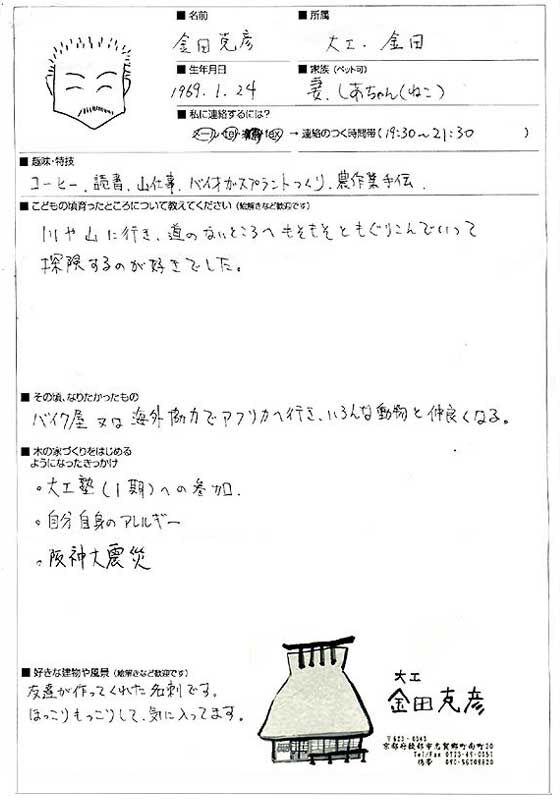 ■ 名前
金田克彦
■ 所属
大工. 金田
■ 生年月日
1969. 1. 24
■ 家族（ペット可）
妻. しあちゃん(ねこ)
■ 私に連絡するには?
メール・tel・fax → 連絡のつく時間帯( 19:30〜21:30 )
■ 趣味・特技
コーヒー. 読書. 山仕事. バイオガスプラントつくり. 農作業手伝.
■ こどもの頃育ったところについて教えてください（絵解きなど歓迎です）
川や山に行き、道のないところへもそもそともぐりこんでいって
探険するのが好きでした。
■ その頃、なりたかったもの
バイク屋 又は 海外協力でアフリカへ行き、いろんな動物と仲良くなる。
■ 木の家づくりをはじめる
ようになったきっかけ
。大工塾(1期)への参加.
。自分自身のアレルギー
。阪神大震災
■ 好きな建物や風景（絵解きなど歓迎です）
友達が作ってくれた名刺です。
ほっこりもっこりして、気に入ってます。
大工
金田克彦
京都府綾部市志賀郷町南町30
Tel/Fax
携帯